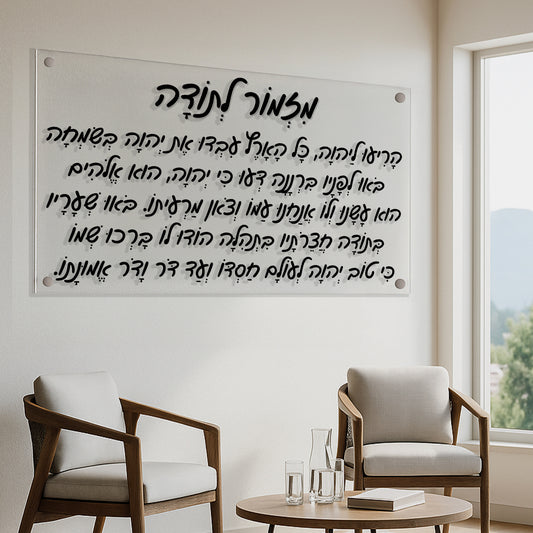 מִזְמוֹר לְתוֹדָה
הָרִיעוּ לַיהוָה, כָּל הָאָרֶץ עִבְדוּ אֶת יְהוָה בְּשִׂמְחָה
בֹּאוּ לְפָנָיו בִּרְנָנָה דְּעוּ כִּי יְהוָה, הוּא אֱלֹהִים
הוּא עָשָׂנוּ וְלוֹ אֲנַחְנוּ עַמּוֹ וְצֹאן מַרְעִיתוֹ. בֹּאוּ שְׁעָרָיו
בְּתוֹדָה חֲצֵרֹתָיו בִּתְהִלָּה הוֹדוּ לוֹ בָּרְכוּ שְׁמוֹ
כִּי טוֹב יְהוָה לְעוֹלָם חַסְדּוֹ וְעַד דֹּר וָדֹר אֱמוּנָתוֹ.